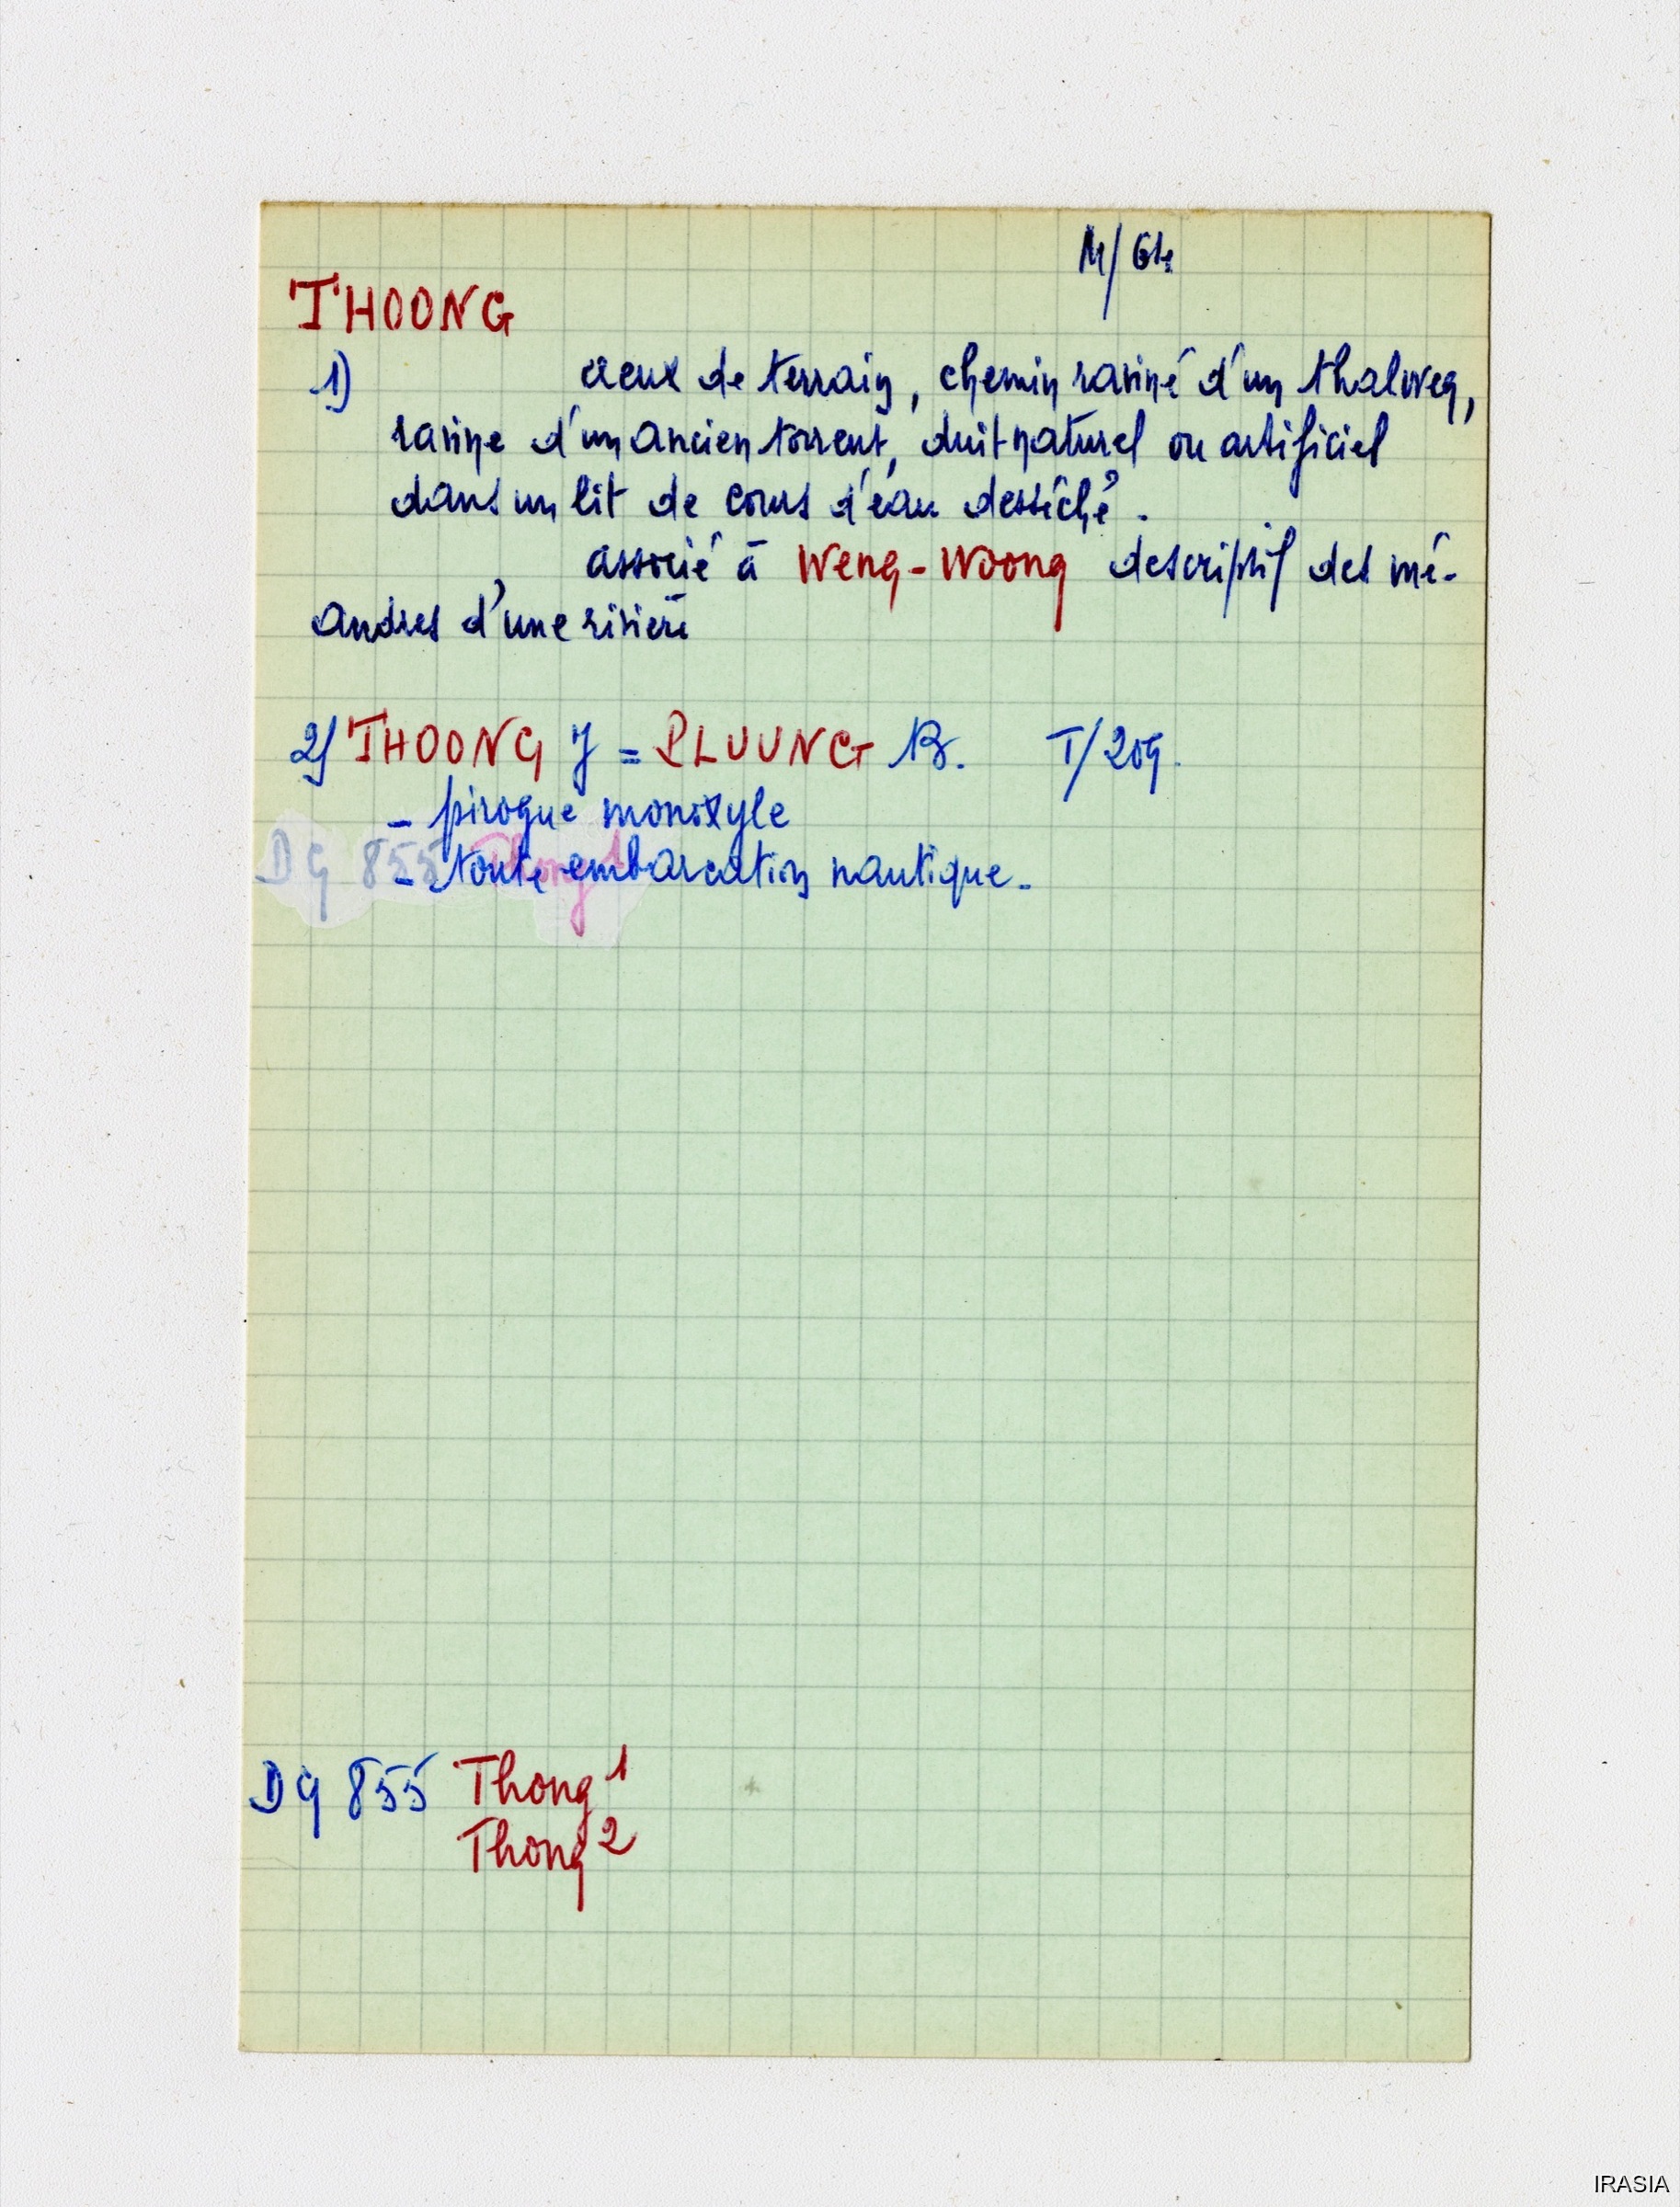 M/
THOONG
1) creux de terrain, chemin raviné d'un thalweg,
ravine d'un ancien torrent, duit naturel ou artificiel
dans un lit de cours d'eau desséché.
associé à Weng-Woong descriptif des mé-
andres d'une rivière
2) THOONG J = PLUUNG B. T/209.
- pirogue monoxyle
- toute embarcation nautique.
DG 855 Thong
DG 855 Thong 1
Thong 2
IRASIA